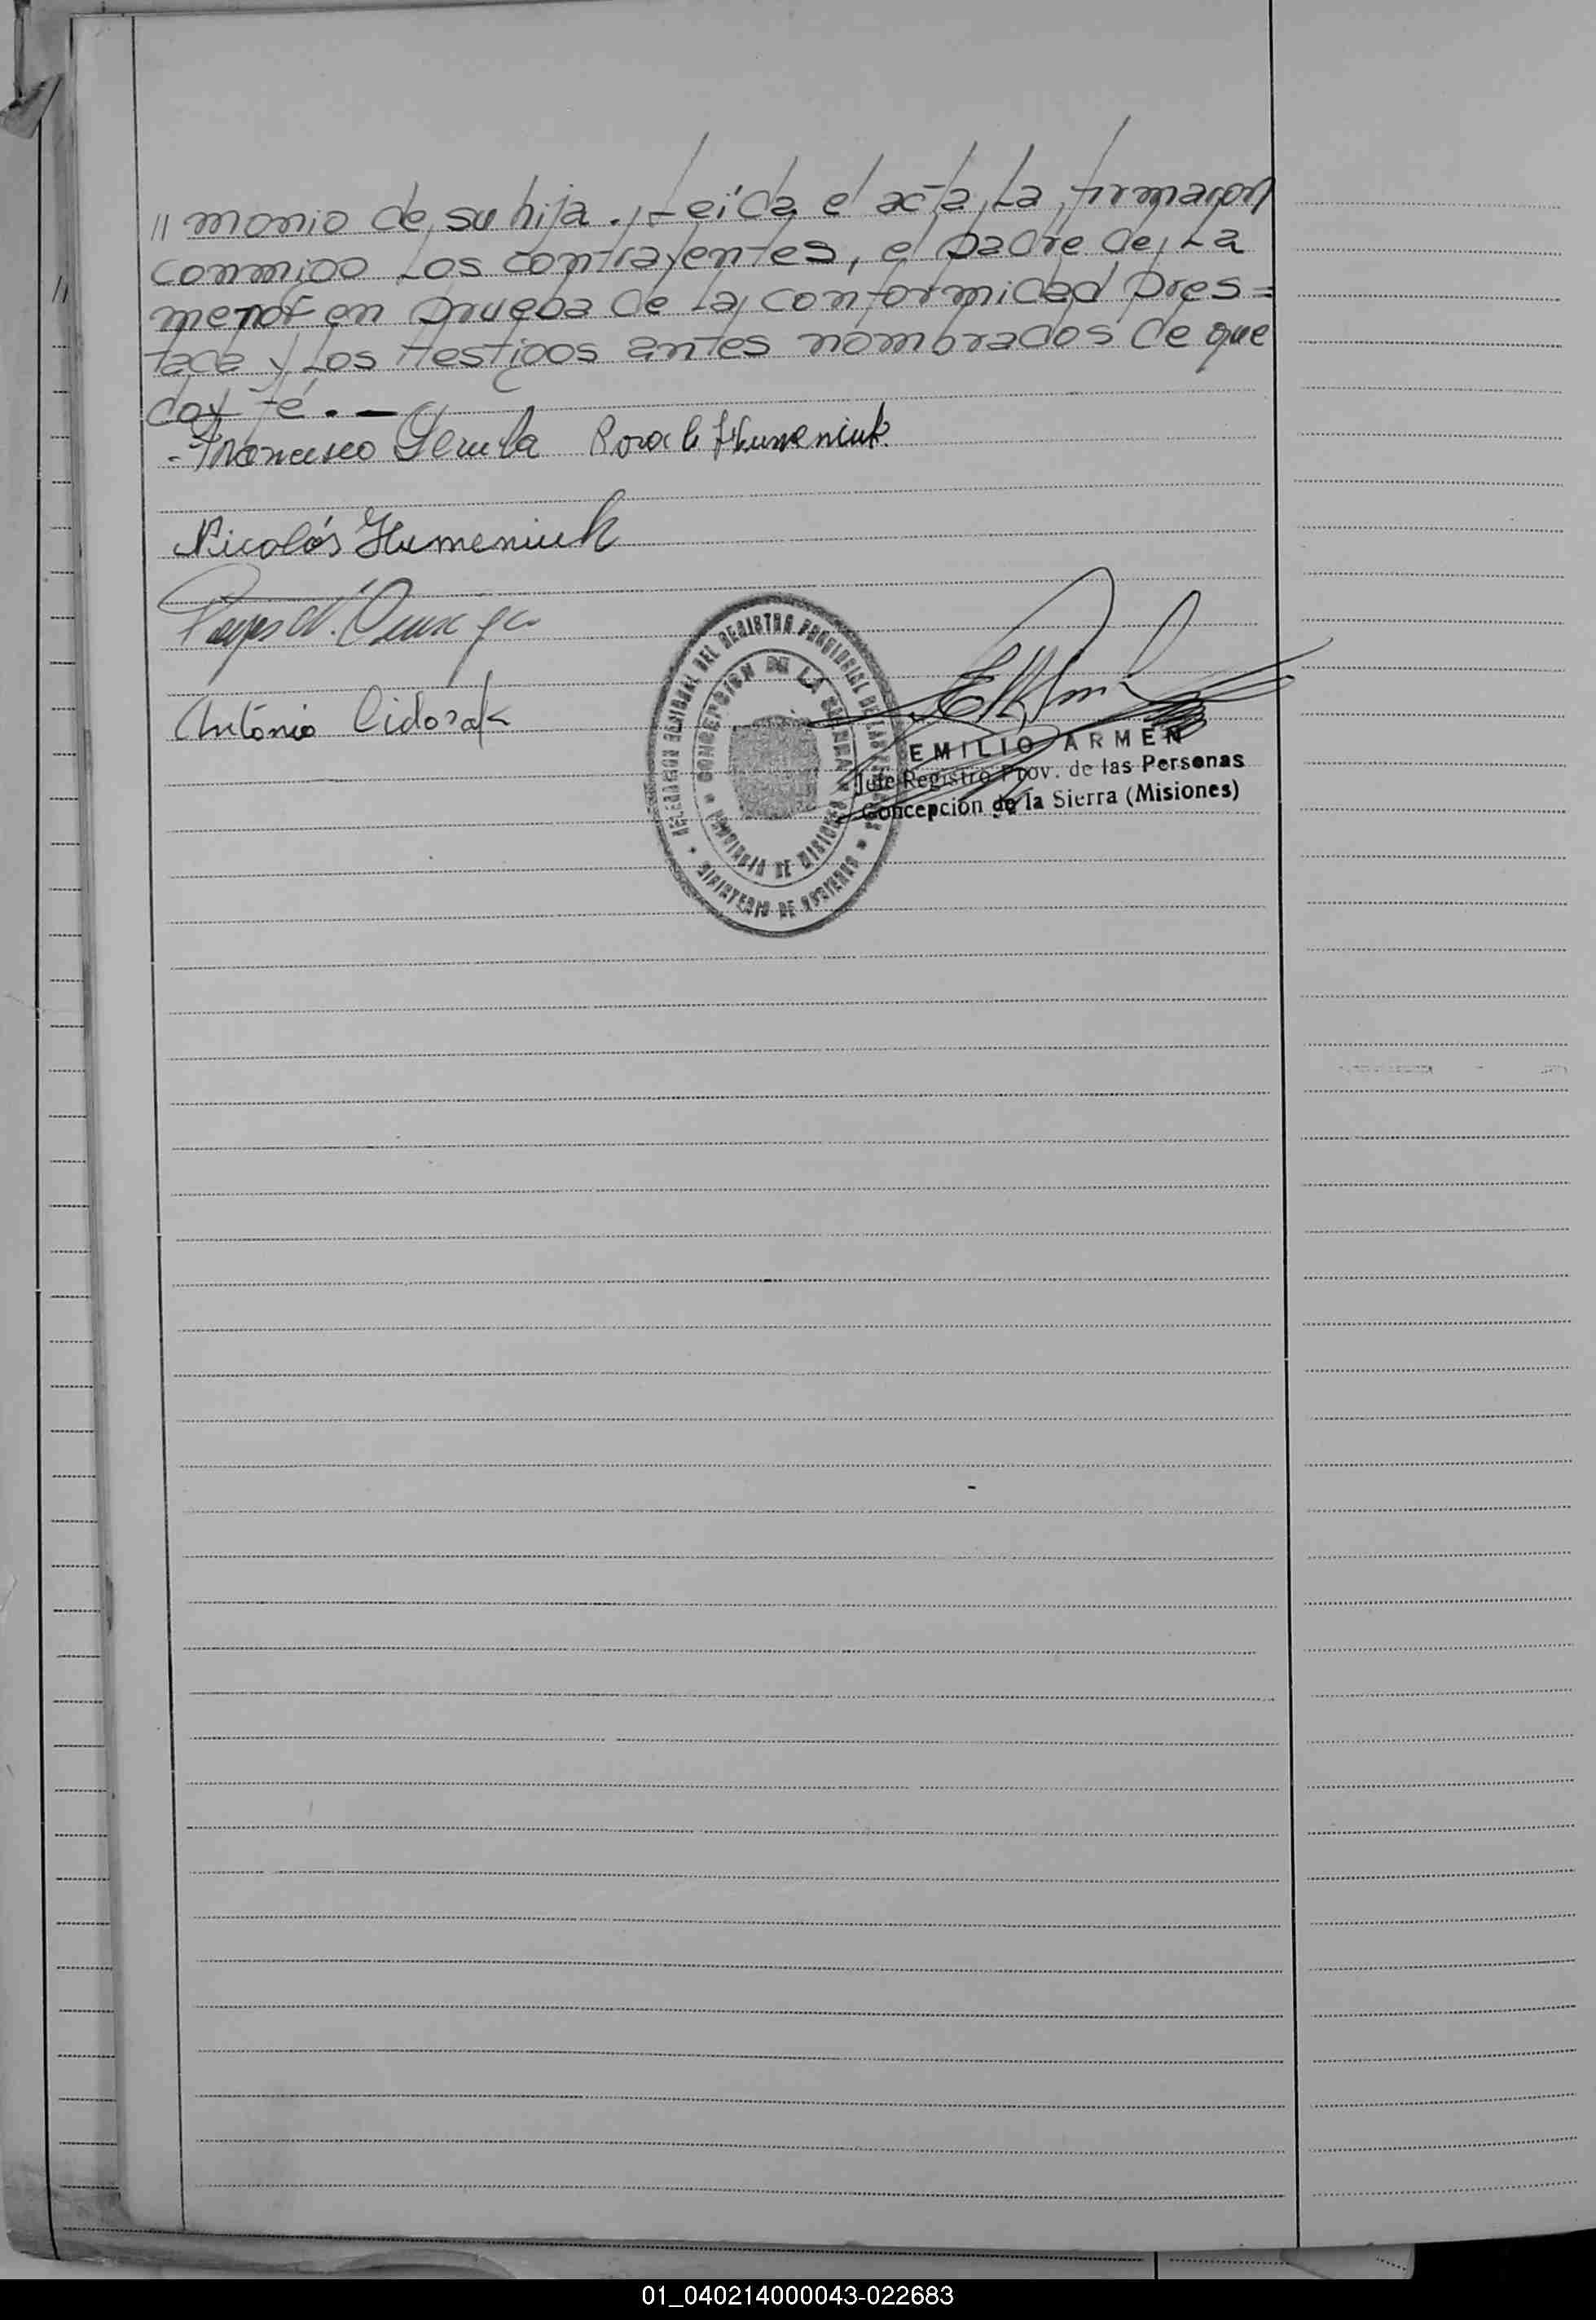 // monio de su hija. Leída el acta, la firmaron
conmigo los contrayentes, el padre de la
menor en prueba de la conformidad pres=
tada y los testigos antes nombrados de que
doy fé. —
Francisco Rosa Humeniuk
Nicolás Humeniuk
António
DELEGACION REGIONAL DEL REGISTRO PROVINCIAL DE LAS PERSONAS
CONCEPCION DE LA SIERRA
PROVINCIA DE MISIONES
MINISTERIO DE GOBIERNO
EMILIO ARMEN
Jefe Registro Prov. de las Personas
Concepción de la Sierra (Misiones)
01_040214000043-022683